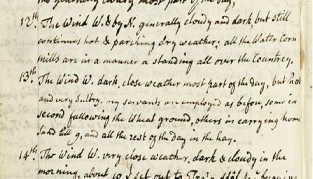 12th. The Wind W. & by N. generally cloudy and dark, but still
continues hot & parching dry weather; all the Water Corn
Mills are in a manner a standing all over the Country.
13th. The Wind W. dark, close weather most part of the Day, but
and very Sultry, my servants are employed as before, some in
second fallowing the Wheat ground, others in carrying home
Sand and all the rest of the day in the hay.
14th. The Wind W. very close weather, dark & cloudy in the
morning, about 10 I set out to